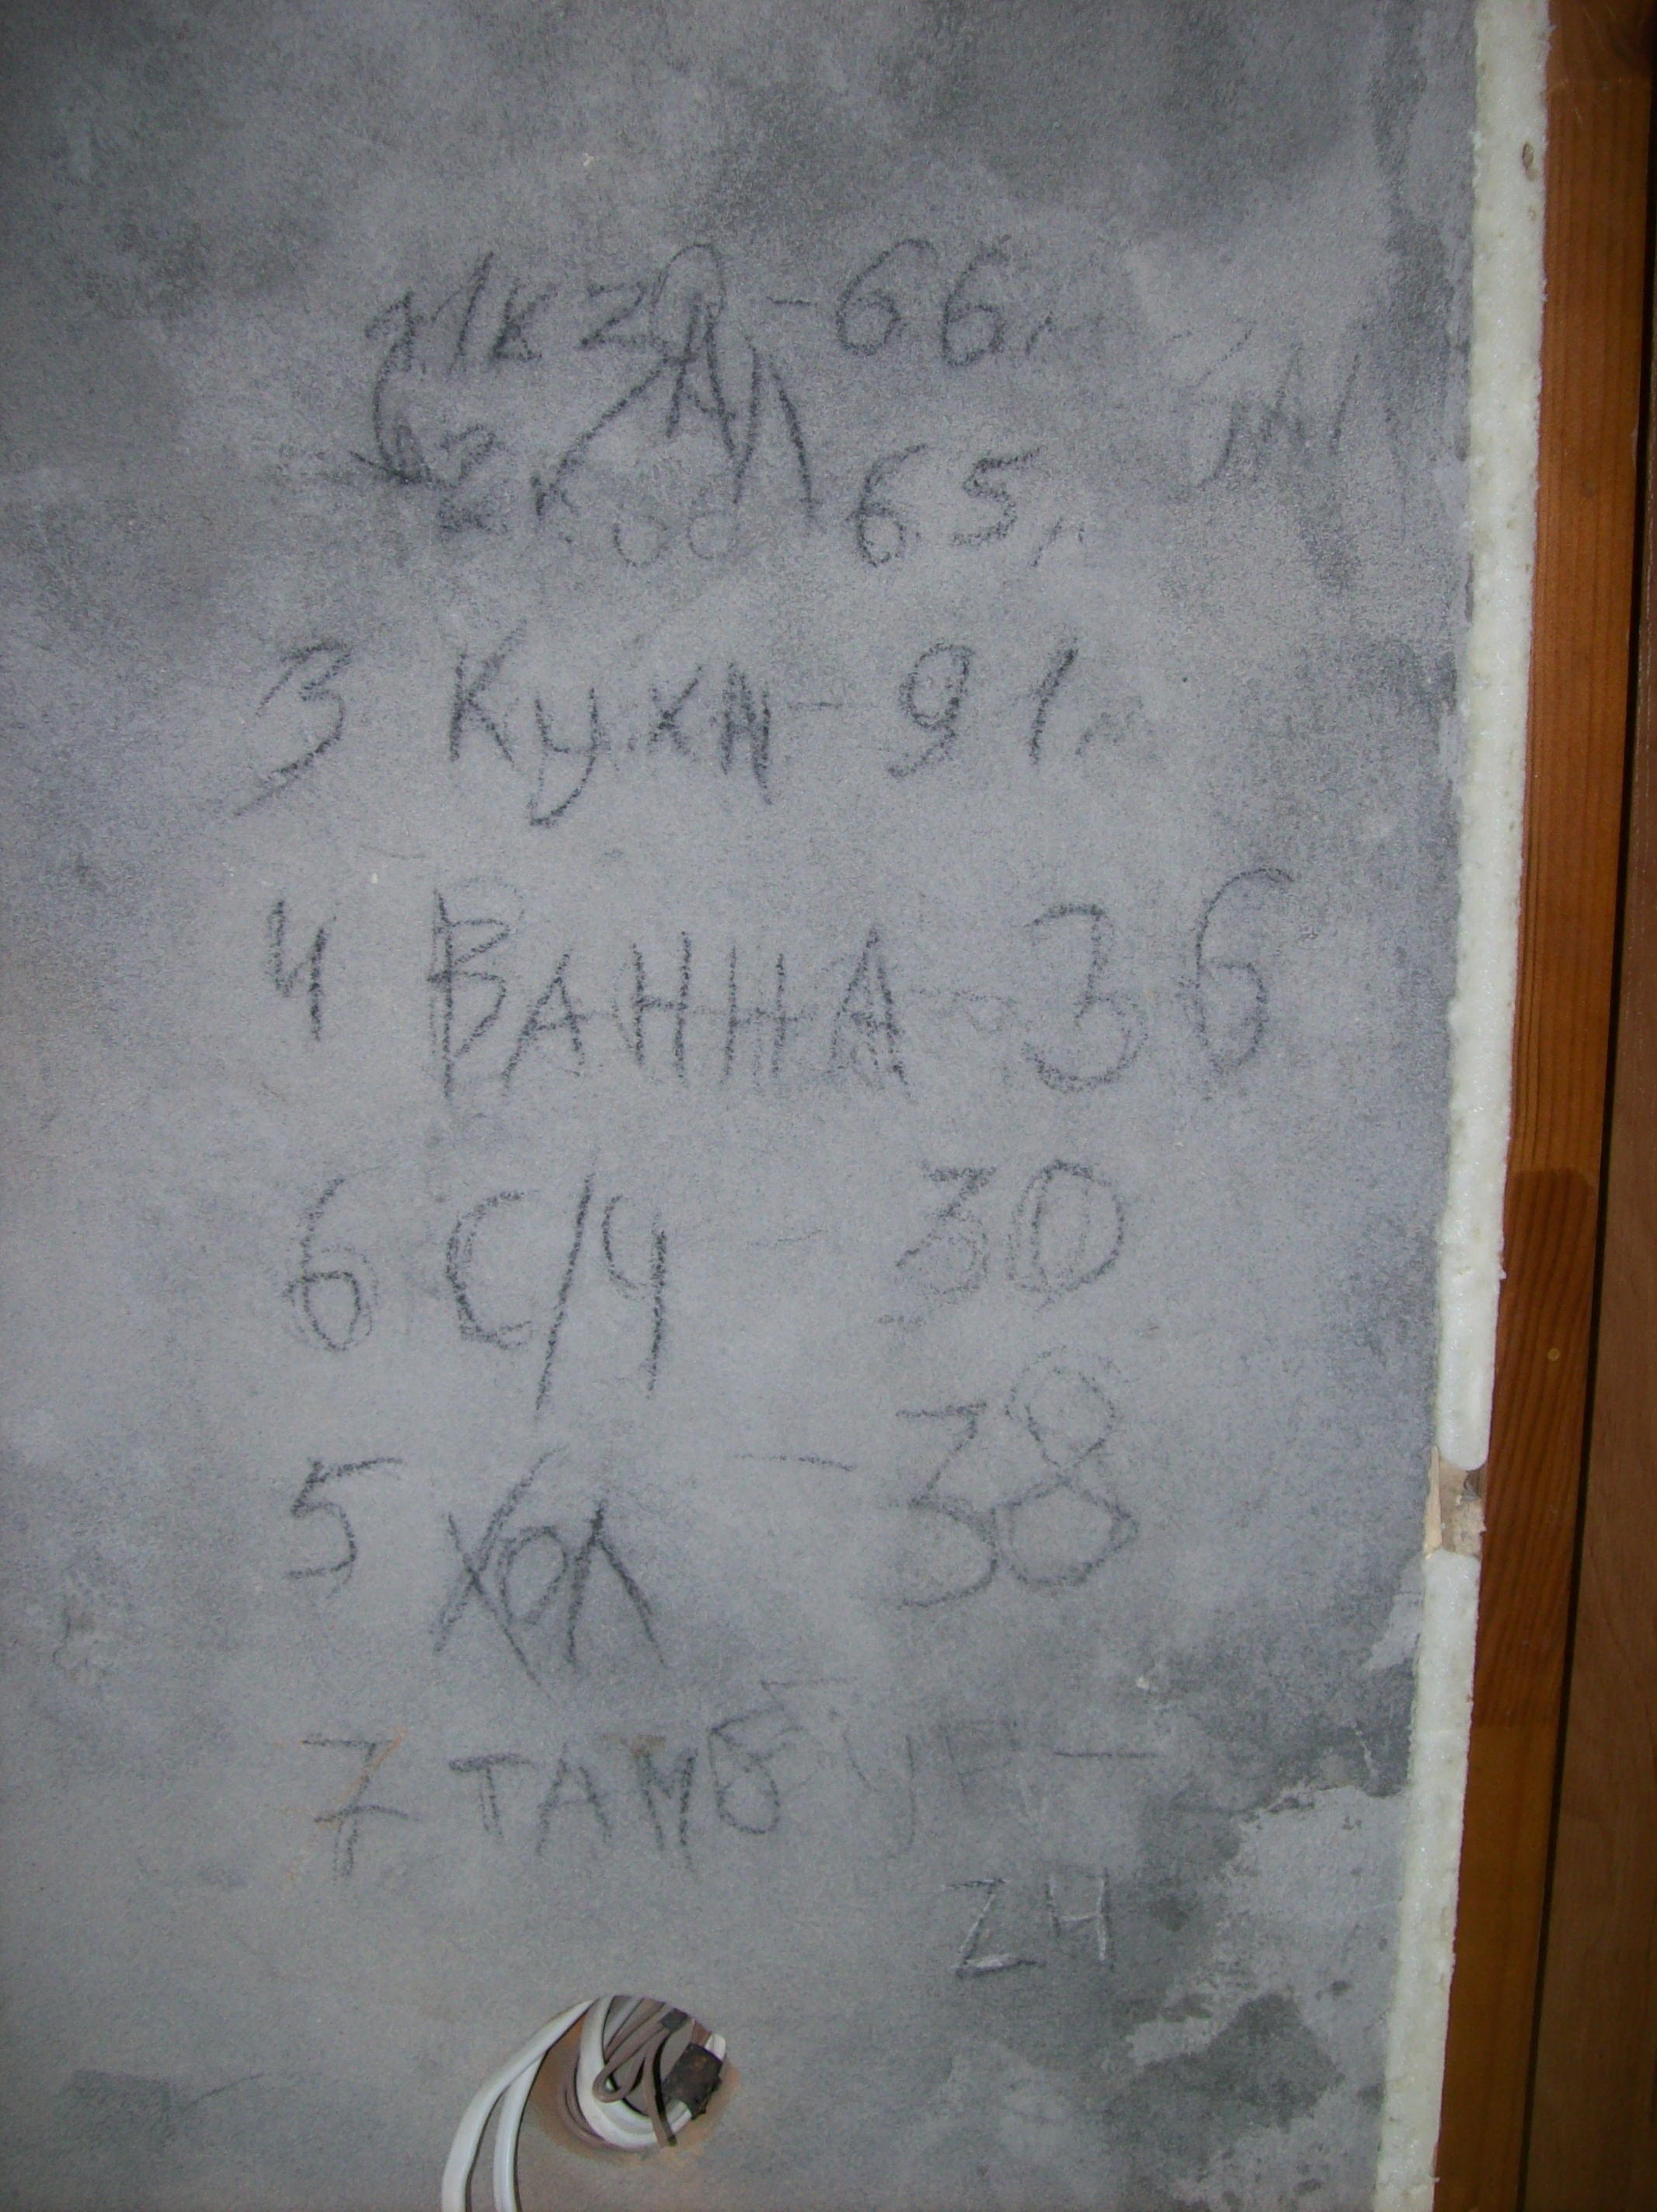 1к ZАЛ - 66м
2к 65м
3 Кухн - 91м
4 ВАННА - 36
6 С/У - 30
5 Хол - 38
7 ТАМБУР -
24